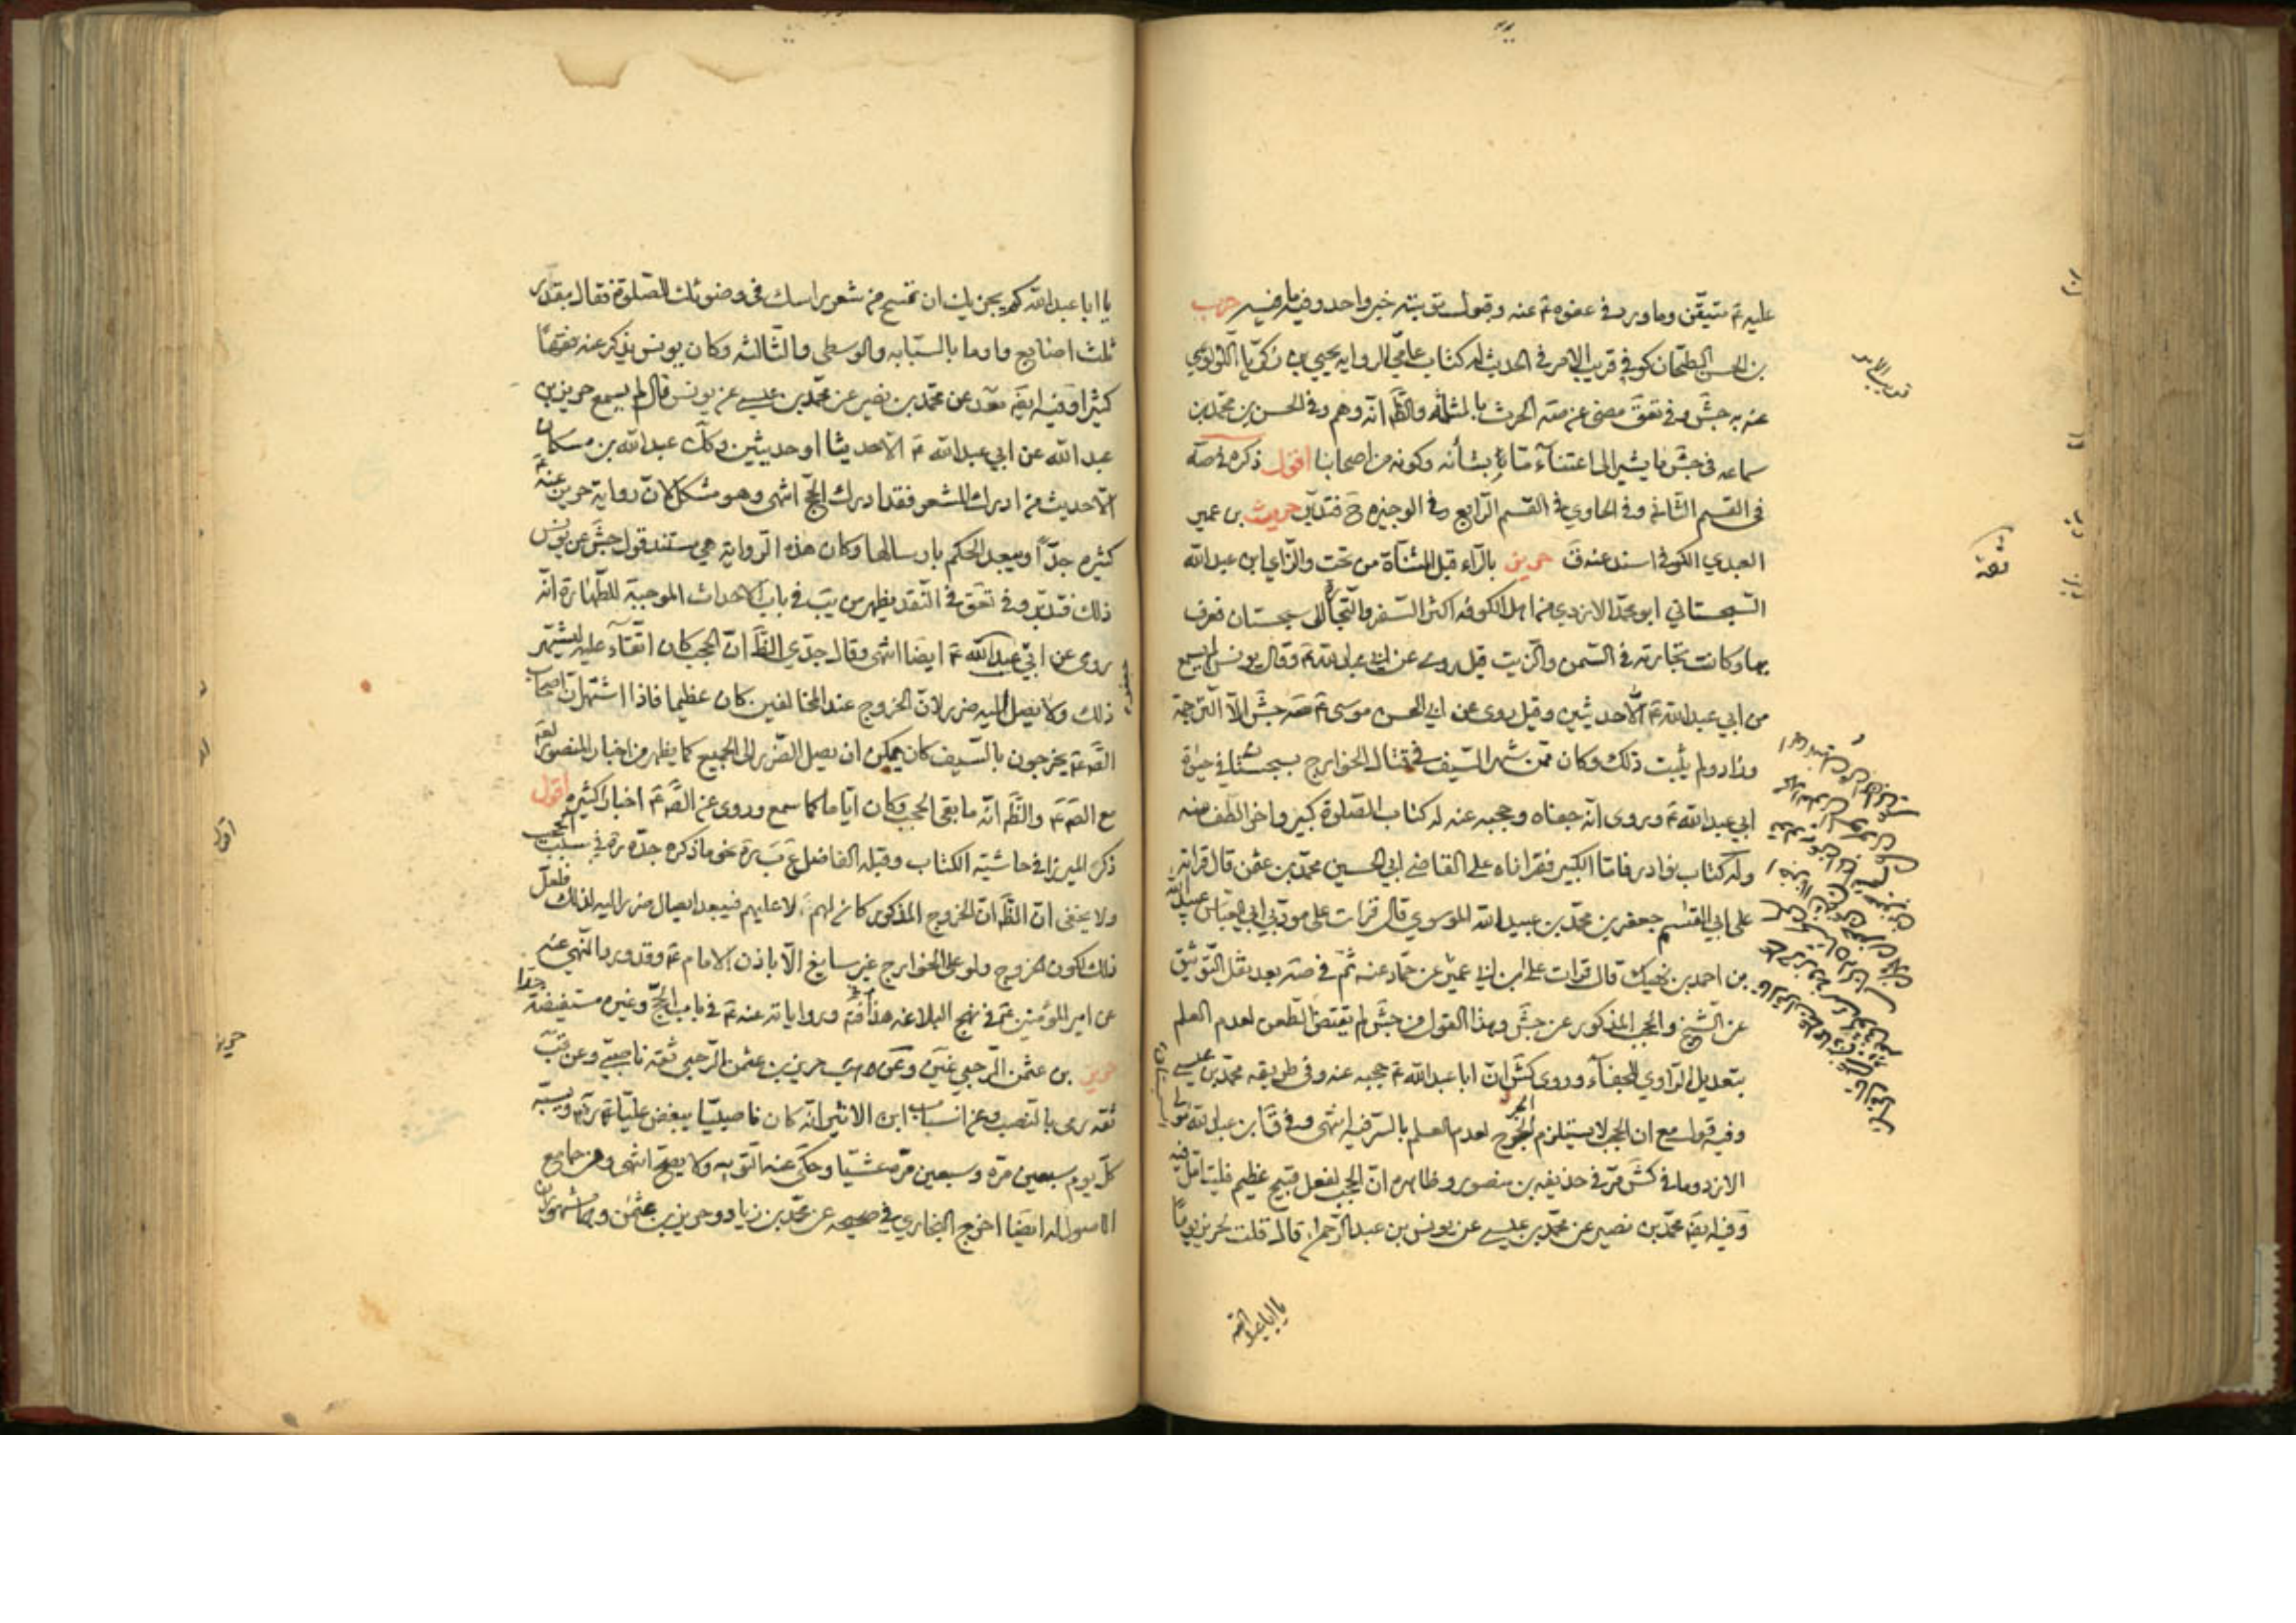 عليه ع متيقن وما ورد في عفوه ع عنه وقبول توبته خبر واحد وفيه ما فيه حرب
بن الحسن الطحان كوفي قريب الامر في الحديث له كتاب عامي الرواية يحيى بن زكريا اللؤلؤي
عنه به جش وفي تعق مضى عن صه الحرث بالمثلثة والظ انه وهم وفي الحسن بن محمد بن
سماعه في جش ما يشير الى اعتناء ما بشأنه وكونه من اصحابنا اقول ذكره في صه
في القسم الثاني وفي الحاوي في القسم الرابع وفي الوجيزه ح فتدبر حريث بن عمير
العبدي الكوفي اسند عنه ق حريز بالراء قبل المثناة من تحت والزاي ابن عبد الله
السجستاني ابو محمد الازدي من اهل الكوفه اكثر السفر والتجارة الى سجستان فعرف
بها وكانت تجارته في السمن والزيت قيل روى عن ابي عبد الله ع وقال يونس لم يسمع
من ابي عبد الله ع الا حديثين وقيل روى عن ابي الحسن موسى ع صه جش الا الترجمة
وزاد ولم يثبت ذلك وكان ممن شهر السيف في قتال الخوارج بسجستان في حيوة
ابي عبد الله ع وروى انه جفاه وحجبه عنه له كتاب الصلوة كبير واخر الطف منه
وله كتاب نوادر فاما الكبير فقراناه على القاضي ابي الحسين محمد بن عثمن قال قراته
على ابي القسم جعفر بن محمد بن عبيد الله الموسوي قال قرات على مؤدبي ابي العباس عبيد الله
بن احمد بن نهيك قال قرات على ابن ابي عمير عن حماد عنه ثم في صه بعد نقل التوثيق
عن الشيخ والحجب المذكور عن جش وهذا القول من جش لم يقتض الطعن لعدم العلم
بتعديل الراوي للجفاء وروى كش ان ابا عبد الله ع حجبه عنه وفي طريقه محمد بن عيسى
وفيه قول مع ان الحجب لا يستلزم الجرح لعدم العلم بالسر فيه انتهى وفي ق ابن عبد الله مولى
الازد وما في كش مر في حذيفه بن منصور وظاهره ان الحجب لفعل قبيح عظيم فليتامل فيه
وفيه ايضه محمد بن نصير عن محمد بن عيسى عن يونس بن عبد الرحمن قال قلت لحريز يوما
يا ابا عبد الله
ثقة
يا ابا عبد الله كم يجزيك ان تمسح من شعر راسك في وضوئك للصلوة فقال بقدر
ثلث اصابع واومأ بالسبابه والوسطى والثالثه وكان يونس يذكر عنه فقها
كثيرا وفيه ايضه عن محمد بن نصير عن محمد بن عيسى عن يونس قال لم يسمع حريز بن
عبد الله عن ابي عبد الله ع الا حديثا او حديثين وكك عبد الله بن مسكان
الا حديث من ادرك المشعر فقد ادرك الحج انتهى وهو مشكل لان رواية حريز عنه ع
كثيره جدا ويبعد الحكم بارسالها وكان هذه الرواية هي مستند قول جش عن يونس
ذلك فتدبر وفي تعق في النقد يظهر من يب في باب الاحداث الموجبة للطهارة انه
روى عن ابي عبد الله ع ايضا انتهى وقال جدي الظ ان الحجب كان اتقاء عليه ليشتهر
ذلك ولا يصل اليه ضرر لان الخروج عند المخالفين كان عظيما فاذا اشتهر ان اصحاب
الص ع يخرجون بالسيف كان يمكن ان يصل الضرر الى الجميع كما يظهر من اخبار المنصور لعنه
مع الص ع والظ انه ما بقي الحجب وكان اياما كما سمع وروى عن الص ع اخبارا كثيره اقول
ذكر الميرزا في حاشية الكتاب وقبله الفاضل نحو ما ذكره جده ره في سبب الحجب
ولا يخفى ان الظ ان الخروج المذكور كان لهم لا عليهم فيبعد ايصال ضرر اليه لذلك فلعل
ذلك لكون الخروج ولو على الخوارج غير سايغ الا باذن الامام ع وقد ورد النهي عنه
عن امير المؤمنين ع في نهج البلاغه هذا ورواياته عنه ع في باب الحج وغيره مستفيضة جدا
حريز بن عثمن الرحبي حريز بن عثمن الرحبي ثقه ناصبي وعن قب
ثقه رمى بالنصب وعن انساب ابن الاثير انه كان ناصبيا يبغض عليا ع ويسبه
كل يوم سبعين مرة وسبعين مره عشيا وحكى عنه التوبه ولا يصح انتهى وعن جامع
الاصول له ايضا اخرج البخاري في صحيحه عن محمد بن زياد وحريز بن عثمن وهما مشهوران
اقول
حريز